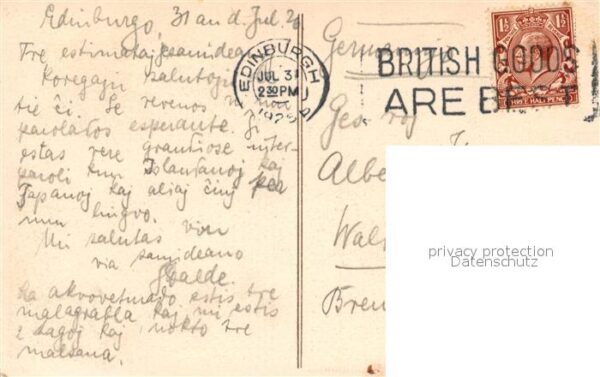 Edinburgo, 31 an d. Jul. 26
Tre estimataj gesamideanoj
Koregajn salutojn
tie ĉi. Se revenos ni
parolatos esperante. Ĝi
estas vere grandiose inter-
paroli kun Islandanoj kaj
Japanoj kaj aliaj ĉiuj per
nun lingvo.
Mi salutas vin
via samideano
La akvoveturado estis tre
malagrabla kaj mi estis
2 tagoj kaj nokto tre
malsana.
EDINBURGH
JUL 31
2 30 PM
192
BRITISH GOODS
ARE BEST
1½ 1½
THREE HALF PENCE
Germanio
Georg
Albe
Wal
Brem
privacy protection
Datenschutz